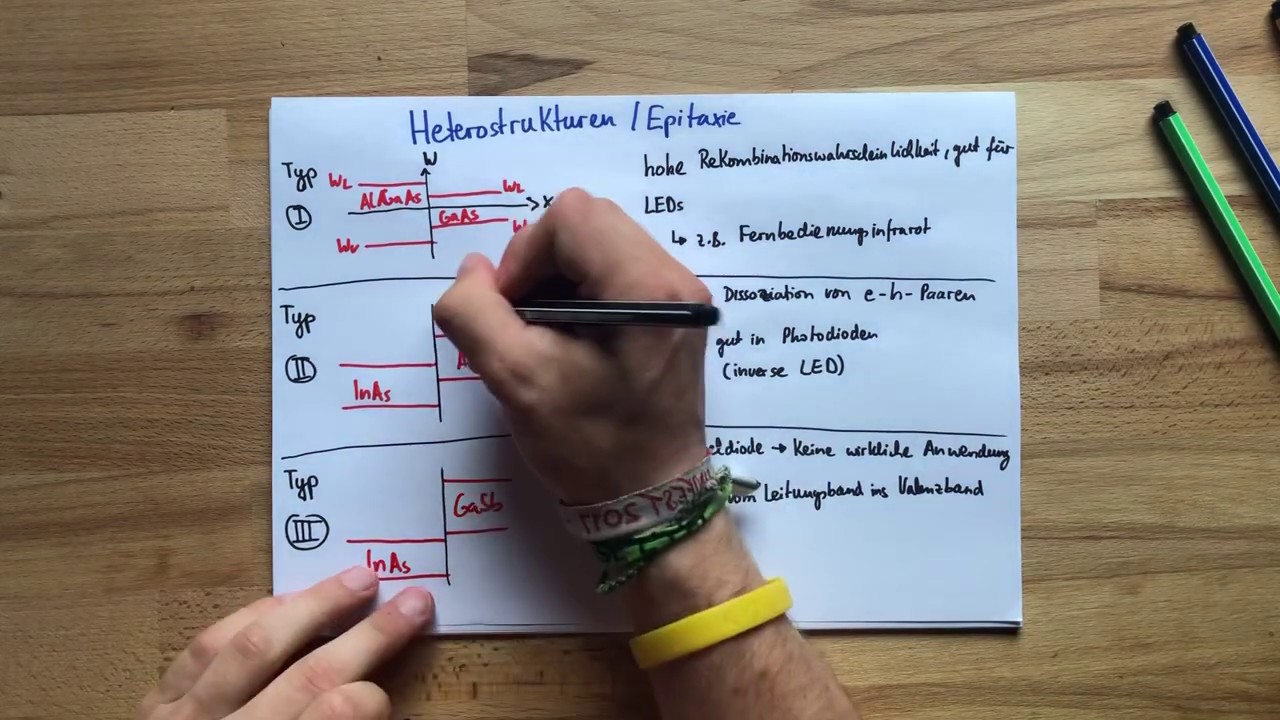 Heterostrukturen / Epitaxie
Typ
I
W
WL
AlGaAs
WL
x
GaAs
Wv
hohe Rekombinationswahrscheinlichkeit, gut für
LEDs
↳ z.B. Fernbedienungsinfrarot
Typ
II
InAs
Dissoziation von e-h-Paaren
gut in Photodioden
(inverse LED)
Typ
III
GaSb
InAs
→ Keine wirkliche Anwendung
vom Leitungsband ins Valenzband